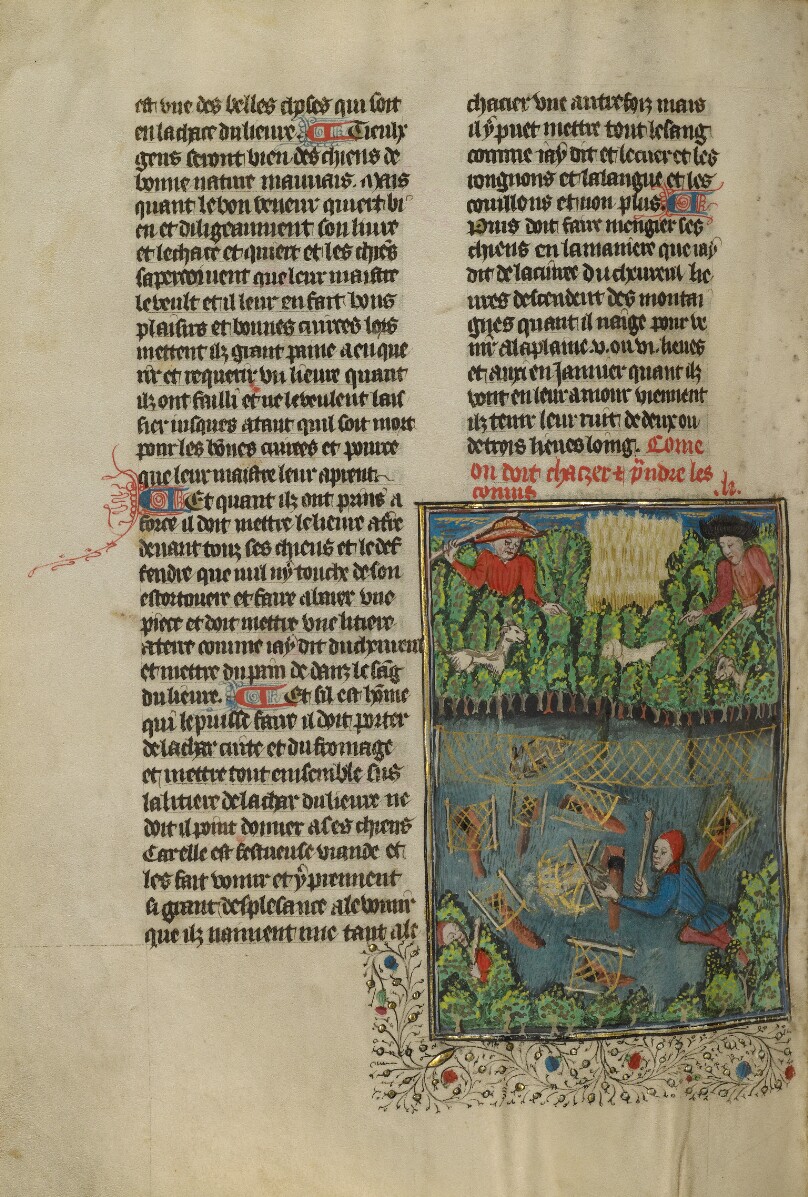 est vne des belles choses qui soit
en la chace du lieure. Tieulx
gens feront bien des chiens de
bonne nature mauuais. Mais
quant le bon veneur quiert bi
en et diligeaument son lieure
et le chace et quiert et les chiẽs
saperceiuent que leur maistre
le veult et il leur en fait bons
plaisirs et bonnes cuirees lors
mettent ilz grant paine a enque
rir et requerir vn lieure quant
ilz ont failli et ne le veulent lais
sier iusques atant quil soit mort
pour les bões cuirees et pource
que leur maistre leur aprent
Et quant ilz ont prins a
force il doit mettre le lieure a tre
deuant touz ses chiens et le def
fendre que nul ny touche de son
estortouere et faire abaier vne
piece et doit mettre vne litiere
a terre comme iay dit du cheureul
et mettre du pain dedanz le sãg
du lieure. Et sil est hõme
qui le puisse faire il doit porter
de la char cuite et du fromage
et mettre tout ensemble sus
la litiere de la char du lieure ne
doit il point donner a ses chiens
Car elle est festueuse viande et
les fait vomir et y prennent
si grant desplesance a le vomir
que ilz nauuent mie tant a le
chacier vne autre foiz mais
il y puet mettre tout le sang
comme iay dit et le cuer et les
rongnons et la langue et les
couillons et non plus.
Puis doit faire mengier ses
chiens en la maniere que iay
dit de la cuiree du cheureul lie
ures descendent des montai
gnes quant il naige pour ve
nir a la plaine .v. ou vi. lieues
et aux en Januier quant ilz
vont en leur amour viennent
ilz tenir leur ruit de deux ou
de trois lieues loing. Come
on doit chacer & p̃ndre les
conins .lx.